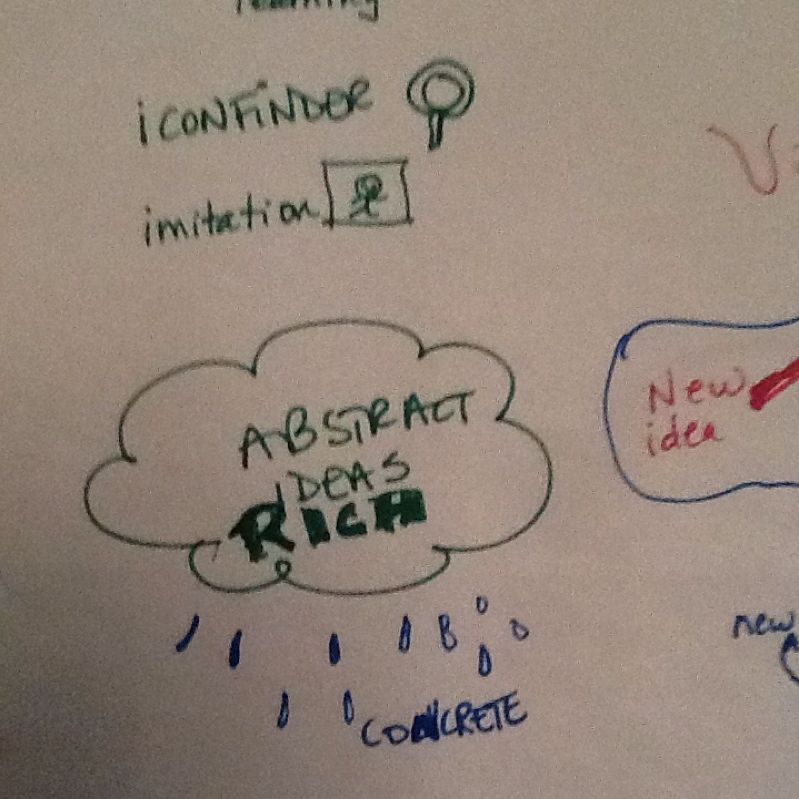 learning
iCONFiNDER
imitation
ABSTRACT
IDEAS
RICH
New
idea
new
CONCRETE